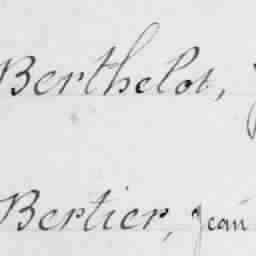 Berthelot,
Bertier, Jean